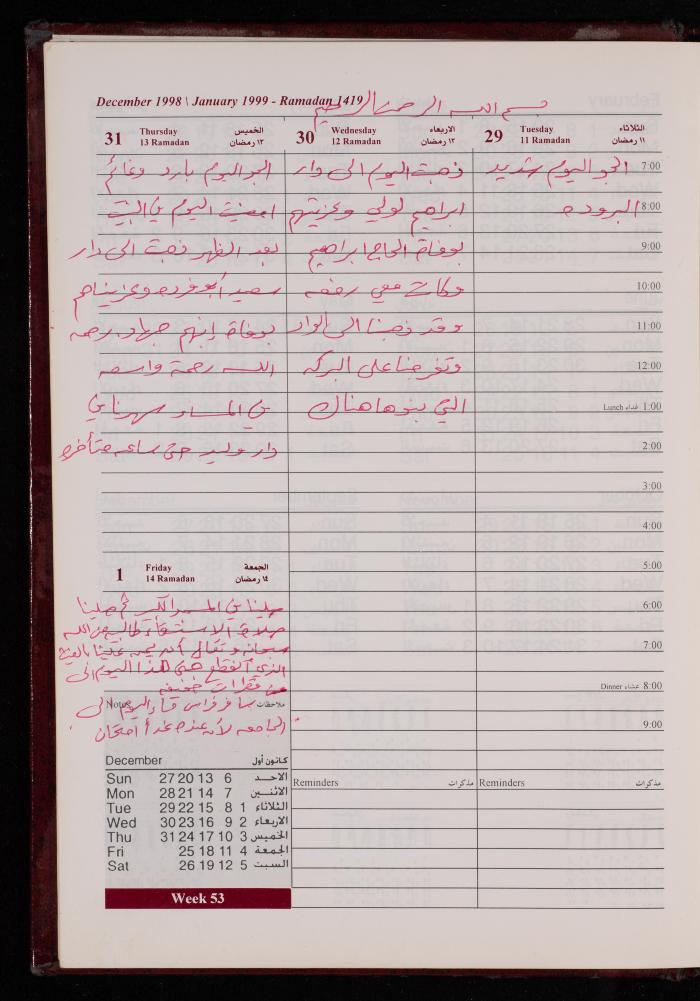 December 1998 \ January 1999 - Ramadan 1419
بسم الله الرحمن الرحيم
29 Tuesday الثلاثاء
11 Ramadan ١١ رمضان
7:00 الجو اليوم شديد
8:00 البروده
9:00
10:00
11:00
12:00
Lunch غداء 1:00
2:00
3:00
4:00
5:00
6:00
7:00
Dinner عشاء 8:00
9:00
Reminders مذكرات
30 Wednesday الاربعاء
12 Ramadan ١٢ رمضان
ذهبت اليوم الى دار
ابراهيم لولي وعزيتهم
بوفاة الحاج ابراهيم
وكان معي رفعه
وقد ذهبنا الى الواد
وتفرجنا على البركه
التي بنوها هناك
Reminders مذكرات
31 Thursday الخميس
13 Ramadan ١٣ رمضان
الجو اليوم بارد وغائم
امضيت اليوم في البيت
بعد الظهر ذهبت الى دار
سعيد أبو فرده وعزيناهم
بوفاة إبنهم جهاد رحمه
الله رحمة واسعه
في المساء سهرنا في
دار وليد حتى ساعه متأخره
1 Friday الجمعة
14 Ramadan ١٤ رمضان
صلينا في المسجد الكبير ثم صلينا
صلاة الاستسقاء طالبين من الله
سبحانه وتعالى أن يمن علينا بالغيث
الذي انقطع حتى هذا اليوم الى
من قطرات خفيفه
Notes ملاحظات
سافر فراس مساء اليوم الى
الجامعه لأن عنده غداً امتحان
December كانون أول
Sun 27 20 13 6 الاحــد
Mon 28 21 14 7 الاثنــين
Tue 29 22 15 8 1 الثلاثاء
Wed 30 23 16 9 2 الاربعاء
Thu 31 24 17 10 3 الخميس
Fri 25 18 11 4 الجمعة
Sat 26 19 12 5 السبت
Week 53